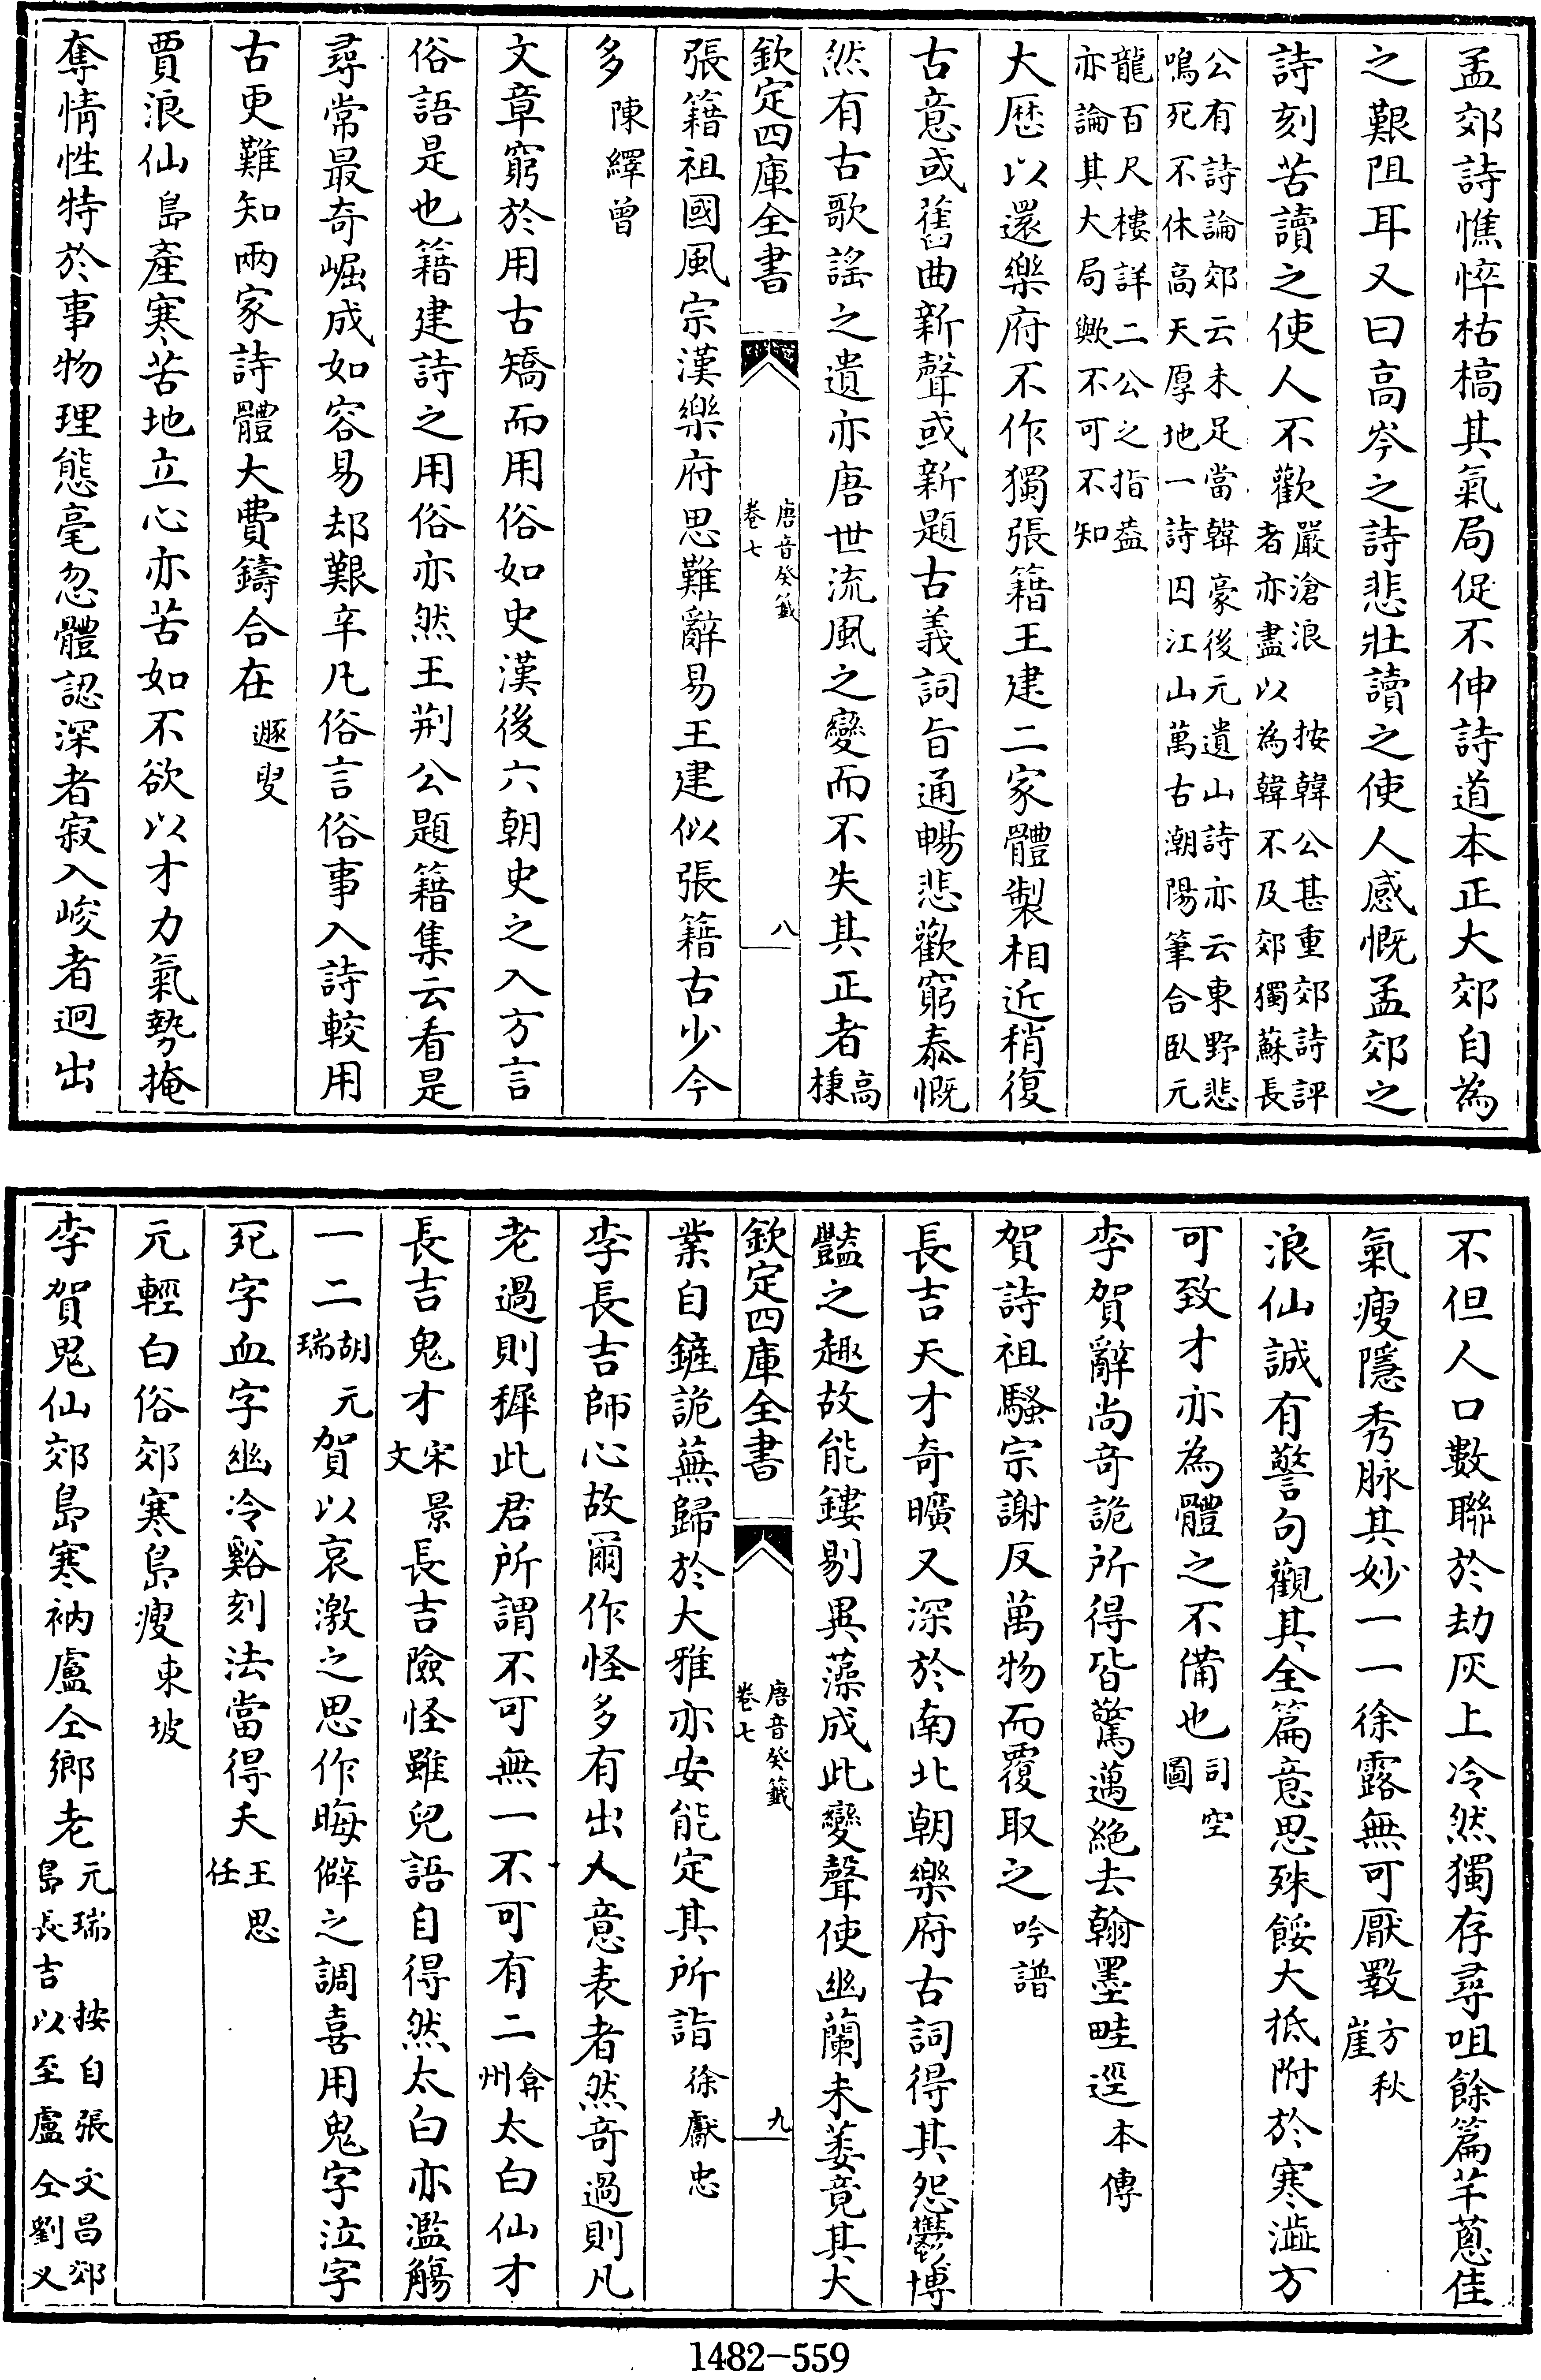 孟郊詩憔悴枯槁其氣局促不伸詩道本正大郊自為
之艱阻耳又曰高岑之詩悲壯讀之使人感慨孟郊之
詩刻苦讀之使人不歡嚴滄浪 按韓公甚重郊詩評
者亦盡以為韓不及郊獨蘇長
公有詩論郊云未足當韓豪後元遺山詩亦云東野悲
鳴死不休高天厚地一詩囚江山萬古潮陽筆合臥元
龍百尺樓詳二公之指葢
亦論其大局歟不可不知
大厯以還樂府不作獨張籍王建二家體製相近稍復
古意或舊曲新聲或新題古義詞旨通暢悲歡窮泰慨
然有古歌謠之遺亦唐世流風之變而不失其正者高
棅
欽定四庫全書
唐音癸籖
卷七
八
張籍祖國風宗漢樂府思難辭易王建似張籍古少今
多陳繹曾
文章窮於用古矯而用俗如史漢後六朝史之入方言
俗語是也籍建詩之用俗亦然王荆公題籍集云看是
尋常最奇崛成如容易却艱辛凡俗言俗事入詩較用
古更難知兩家詩體大費鑄合在遯叟
賈浪仙島產寒苦地立心亦苦如不欲以才力氣勢掩
奪情性特於事物理態毫忽體認深者寂入峻者迥出
不但人口數聯於劫灰上冷然獨存尋咀餘篇芊蔥佳
氣瘦隱秀脉其妙一一徐露無可厭斁方秋
崖
浪仙誠有警句觀其全篇意思殊餒大抵附於寒澁方
可致才亦為體之不備也司空
圖
李賀辭尚奇詭所得皆驚邁絶去翰墨畦逕本傳
賀詩祖騷宗謝反萬物而覆取之吟譜
長吉天才奇曠又深於南北朝樂府古詞得其怨鬱博
豔之趣故能鏤剔異藻成此變聲使幽蘭未萎竟其大
欽定四庫全書
唐音癸籖
卷七
九
業自鏟詭蕪歸於大雅亦安能定其所詣徐獻忠
李長吉師心故爾作怪多有出人意表者然奇過則凡
老過則穉此君所謂不可無一不可有二弇
州太白仙才
長吉鬼才宋景
文長吉險怪雖兒語自得然太白亦濫觴
一二胡元
瑞賀以哀激之思作晦僻之調喜用鬼字泣字
死字血字幽冷谿刻法當得夭王思
任
元輕白俗郊寒島瘦東坡
李賀鬼仙郊島寒衲盧仝鄉老元瑞 按自張文昌郊
島長吉以至盧仝劉乂
1482-559